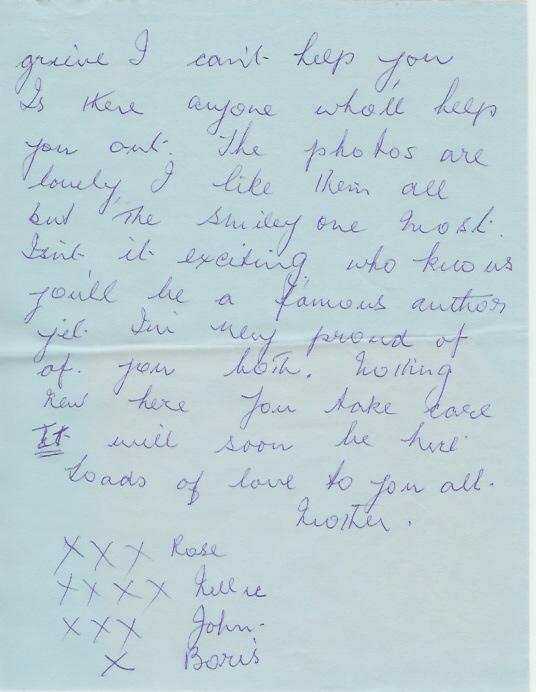 grieve I can't help you
Is there anyone who'll help
you out. The photos are
lovely, I like them all
but the smiley one most.
Isn't it exciting, who knows
you'll be a famous author
yet. I'm very proud of
of you both. Nothing
new here you take care
It will soon be here
Loads of love to you all.
Mother.
XXX Rose
XXXX Nellie
XXX John-
X Boris